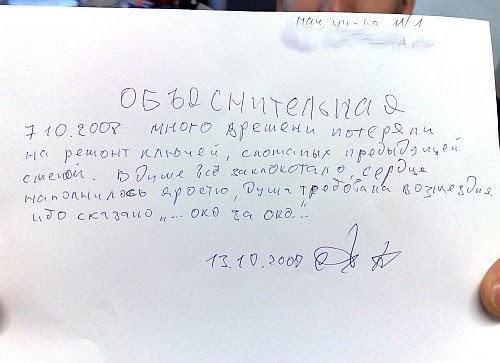 нач. уч-ка
ОБЪЯСНИТЕЛЬНАЯ
7 10.2008 много времени потеряли
на ремонт ключей, сломаных предыдущей
сменой. В душе всё заклокотало, сердце
наполнилось яростю, душа требовала возмездия.
ибо сказано „... око за око..."
13.10.2008